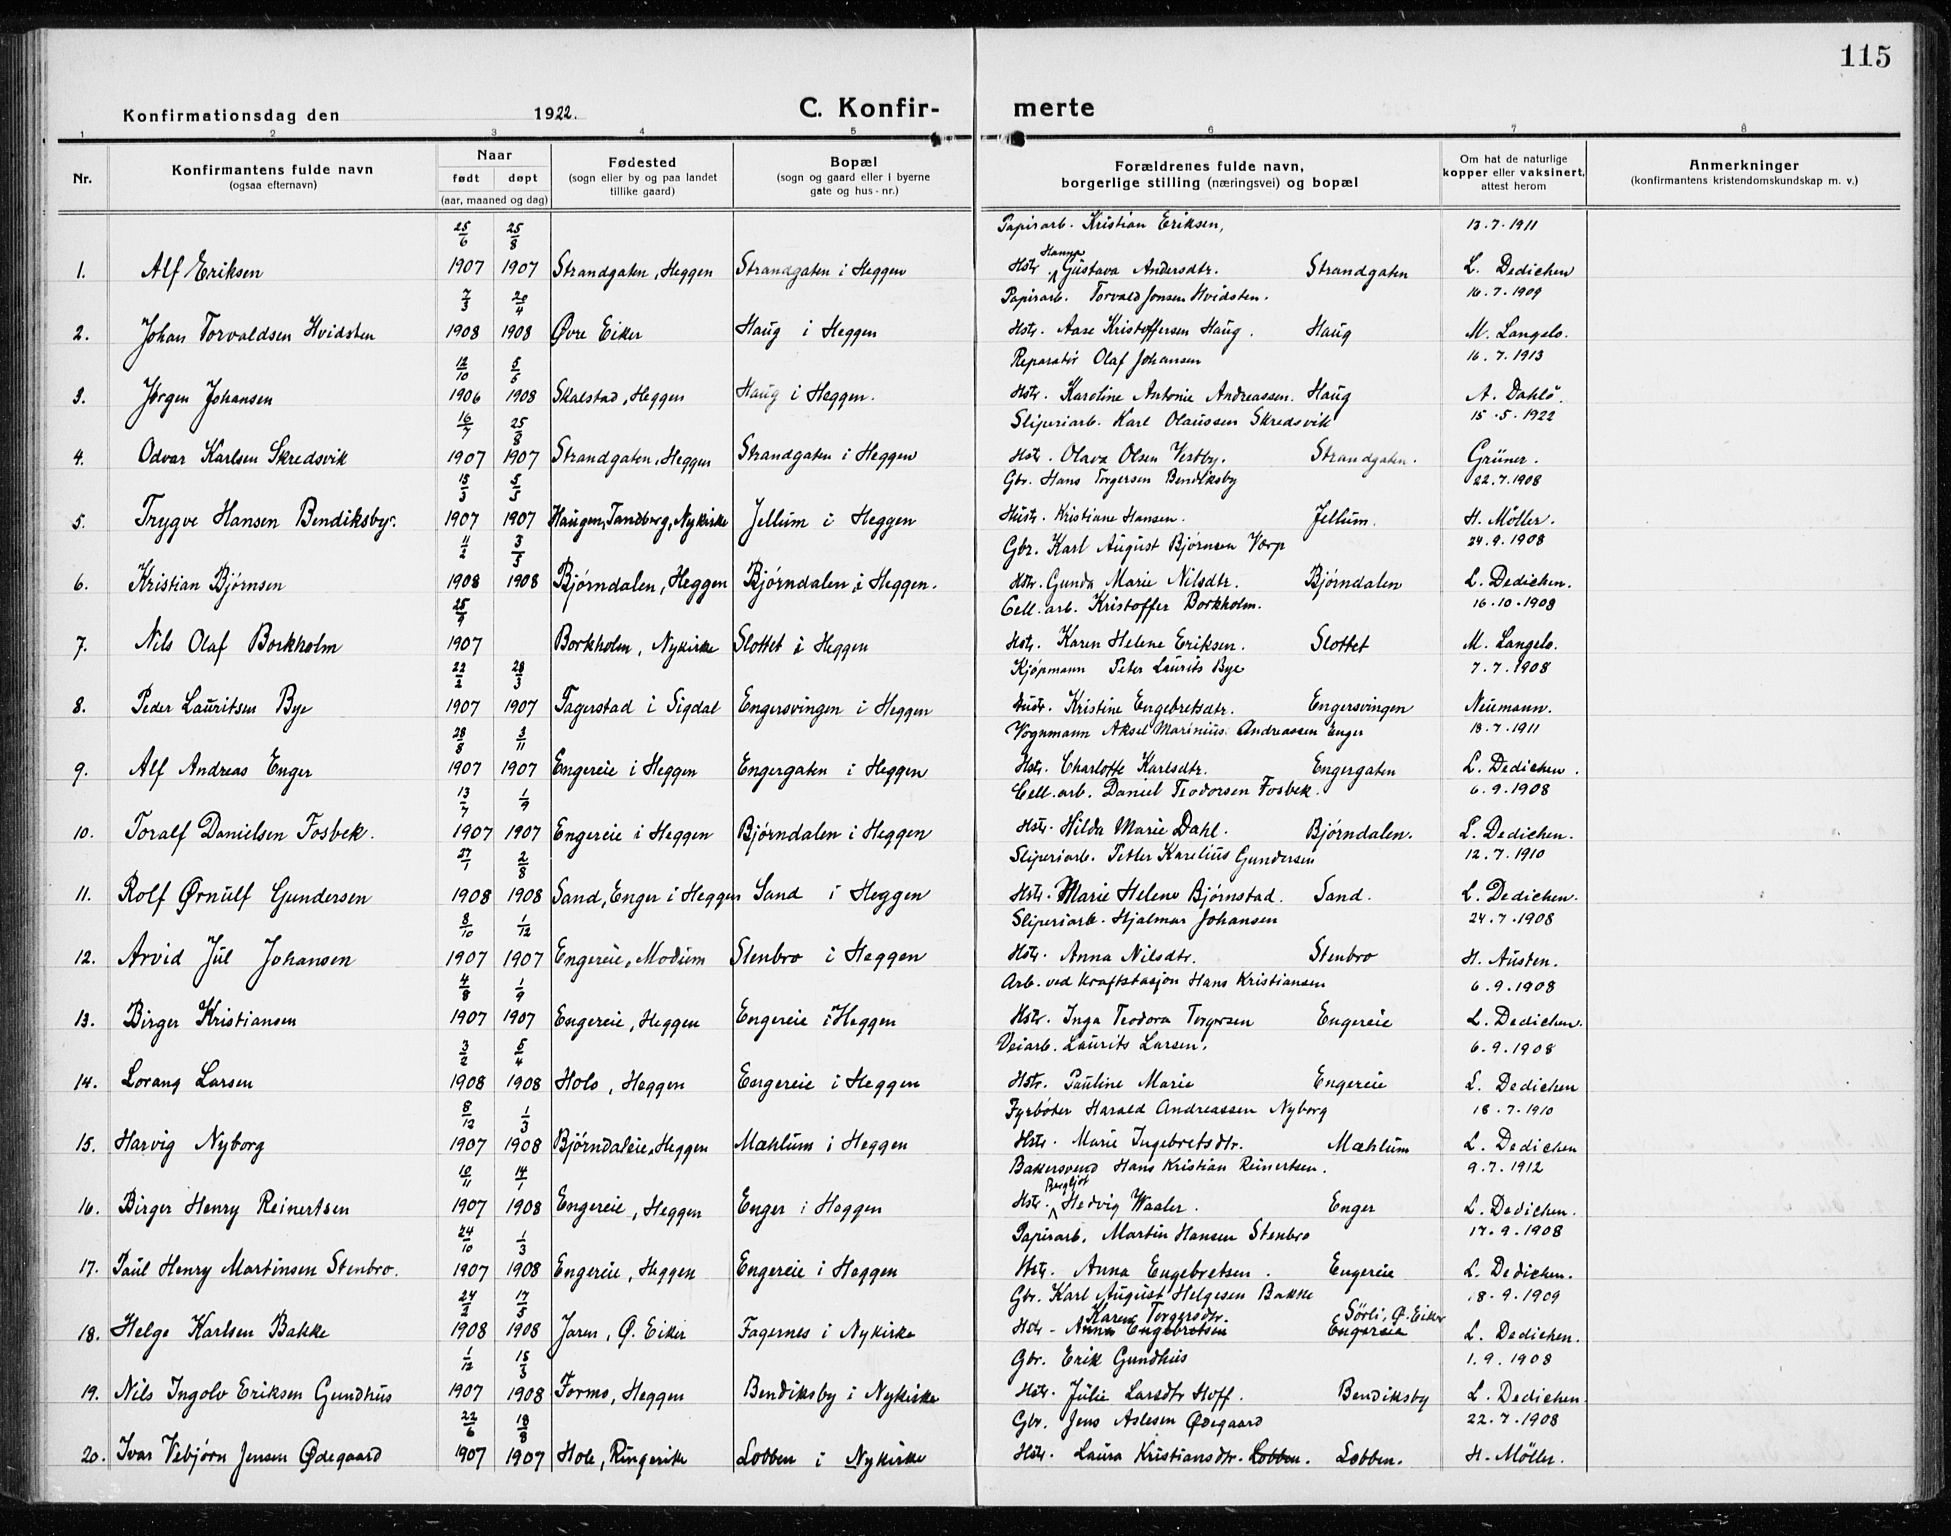 115
Konfirmationsdag den 1922. C. Konfir- merte
1 2 3 4 5 6 7 8
Nr. Konfirmantens fulde navn (ogsaa efternavn) Naar født døpt (aar, maaned og dag) Fødested (sogn eller by og paa landet tillike gaard) Bopæl (sogn og gaard eller i byerne gate og hus-nr.) Forældrenes fulde navn, borgerlige stilling (næringsvei) og bopæl Om hat de naturlige kopper eller vaksinert, attest herom Anmerkninger (konfirmantens kristendomskundskap m. v.)
25/6 25/8 Papirarb. Kristian Eriksen, 13.7.1911
1. Alf Eriksen 1907 1907 Strandgaten, Heggen Strandgaten i Heggen Hstr. Hanna Gustava Andersdtr. Strandgaten L. Dedichen
7/3 20/4 Papirarb. Torvald Jonsen Hvidsten. 16.7.1909
2. Johan Torvaldsen Hvidsten 1908 1908 Øvre Eiker Haug i Heggen Hstr. Aase Kristoffersen Haug. Haug M. Langelo.
12/10 5/5 Reparatør Olaf Johansen 16.7.1913
3. Jørgen Johansen 1906 1908 Skalstad, Heggen Haug i Heggen. Hstr. Karoline Antonie Andreassen. Haug A. Dahlö.
16/7 25/8 Sliperiarb. Karl Olaussen Skredsvik 15.5.1922
4. Odvar Karlsen Skredsvik 1907 1907 Strandgaten, Heggen Strandgaten i Heggen Hstr. Olava Olsen Vestby. Strandgaten. Grüner.
15/3 5/5 Gbr. Hans Torgersen Bendiksby 22.7.1908
5. Trygve Hansen Bendiksby. 1907 1907 Haugen, Tandberg, Nykirke Jellum i Heggen Hustr. Kristiane Hansen. Jellum. H. Möller.
11/2 3/5 Gbr. Karl August Bjørnsen Værp 24.9.1908
6. Kristian Bjørnsen 1908 1908 Bjørndalen, Heggen Bjørndalen i Heggen. Hstr. Gunda Marie Nilsdtr. Bjørndalen L. Dedichen.
25/9 Cell.arb. Kristoffer Borkholm. 16.10.1908
7. Nils Olaf Borkholm 1907 Borkholm, Nykirke Slottet i Heggen Hstr. Karen Helene Eriksen. Slottet M. Langelo.
22/2 28/3 Kjøpmann Peter Laurits Bye 7.7.1908
8. Peder Lauritsen Bye 1907 1907 Fagerstad i Sigdal Engersvingen i Heggen Hustr. Kristine Engebretsdtr. Engersvingen Neumann.
28/8 3/11 Vognmann Aksel Marinius Andreassen Enger 18.7.1911
9. Alf Andreas Enger 1907 1907 Engereie i Heggen Engergaten i Heggen Hstr. Charlotte Karlsdtr. Engergaten L. Dedichen.
13/7 1/9 Cell.arb. Daniel Teodorsen Fosbek. 6.9.1908
10. Toralf Danielsen Fosbek. 1907 1907 Engereie i Heggen Bjørndalen i Heggen Hstr. Hilda Marie Dahl. Bjørndalen. L. Dedichen.
27/1 2/8 Sliperiarb. Petter Karelius Gundersen 12.7.1910
11. Rolf Ørnulf Gundersen 1908 1908 Sand, Enger i Heggen Sand i Heggen Hstr. Marie Helene Bjørnstad. Sand. L. Dedichen.
8/10 1/12 Sliperiarb. Hjalmar Johansen 24.7.1908
12. Arvid Jul Johansen 1907 1907 Engereie, Modum Stenbro i Heggen Hstr. Anna Nilsdtr. Stenbro H. Austen.
4/8 1/9 Arb. ved Kraftstasjon Hans Kristiansen 6.9.1908
13. Birger Kristiansen 1907 1907 Engereie, Heggen Engereie i Heggen Hstr. Inga Teodora Torgersen Engereie L. Dedichen.
3/2 5/4 Veiarb. Laurits Larsen. 6.9.1908
14. Lorang Larsen 1908 1908 Hols, Heggen Engereie i Heggen Hstr. Pauline Marie Engereie L. Dedichen
8/12 1/3 Fyrbøter Harald Andreassen Nyborg 18.7.1910
15. Harvig Nyborg 1907 1908 Bjørndaleie, Heggen Mæhlum i Heggen Hstr. Marie Ingebretsdtr. Mæhlum L. Dedichen
10/11 14/1 Bakersvend Hans Kristian Reinertsen. 9.7.1912
16. Birger Henry Reinertsen 1907 1908 Engereie, Heggen Enger i Heggen Hstr. Bergljot Hedvig Waaler. Enger L. Dedichen.
24/10 1/3 Papirarb. Martin Hansen Stenbro 17.9.1908
17. Paul Henry Martinsen Stenbro. 1907 1908 Engereie, Heggen Engereie i Heggen Hstr. Anna Engebretsen. Engereie L. Dedichen.
24/2 17/5 Gbr. Karl August Helgesen Bakke 18.9.1909
Karen Torgersdtr. Sörli, Ø. Eiker
18. Helge Karlsen Bakke 1908 1908 Jaren, Ø. Eiker Fagernes i Nykirke Hstr. Anna Engebretsen Engereie L. Dedichen.
1/12 15/3 Gbr. Erik Gundhus 1.9.1908
19. Nils Ingolv Eriksen Gundhus 1907 1908 Formo, Heggen Bendiksby i Nykirke Hstr. Julie Larsdtr Hoff. Bendiksby L. Dedichen.
22/6 18/8 Gbr. Jens Aslesen Ødegaard 22.7.1908
20. Ivar Vebjørn Jensen Ødegaard 1907 1907 Hole, Ringerike Lobben i Nykirke Hstr. Laura Kristiansdtr. Lobben. Lobben. H. Möller.